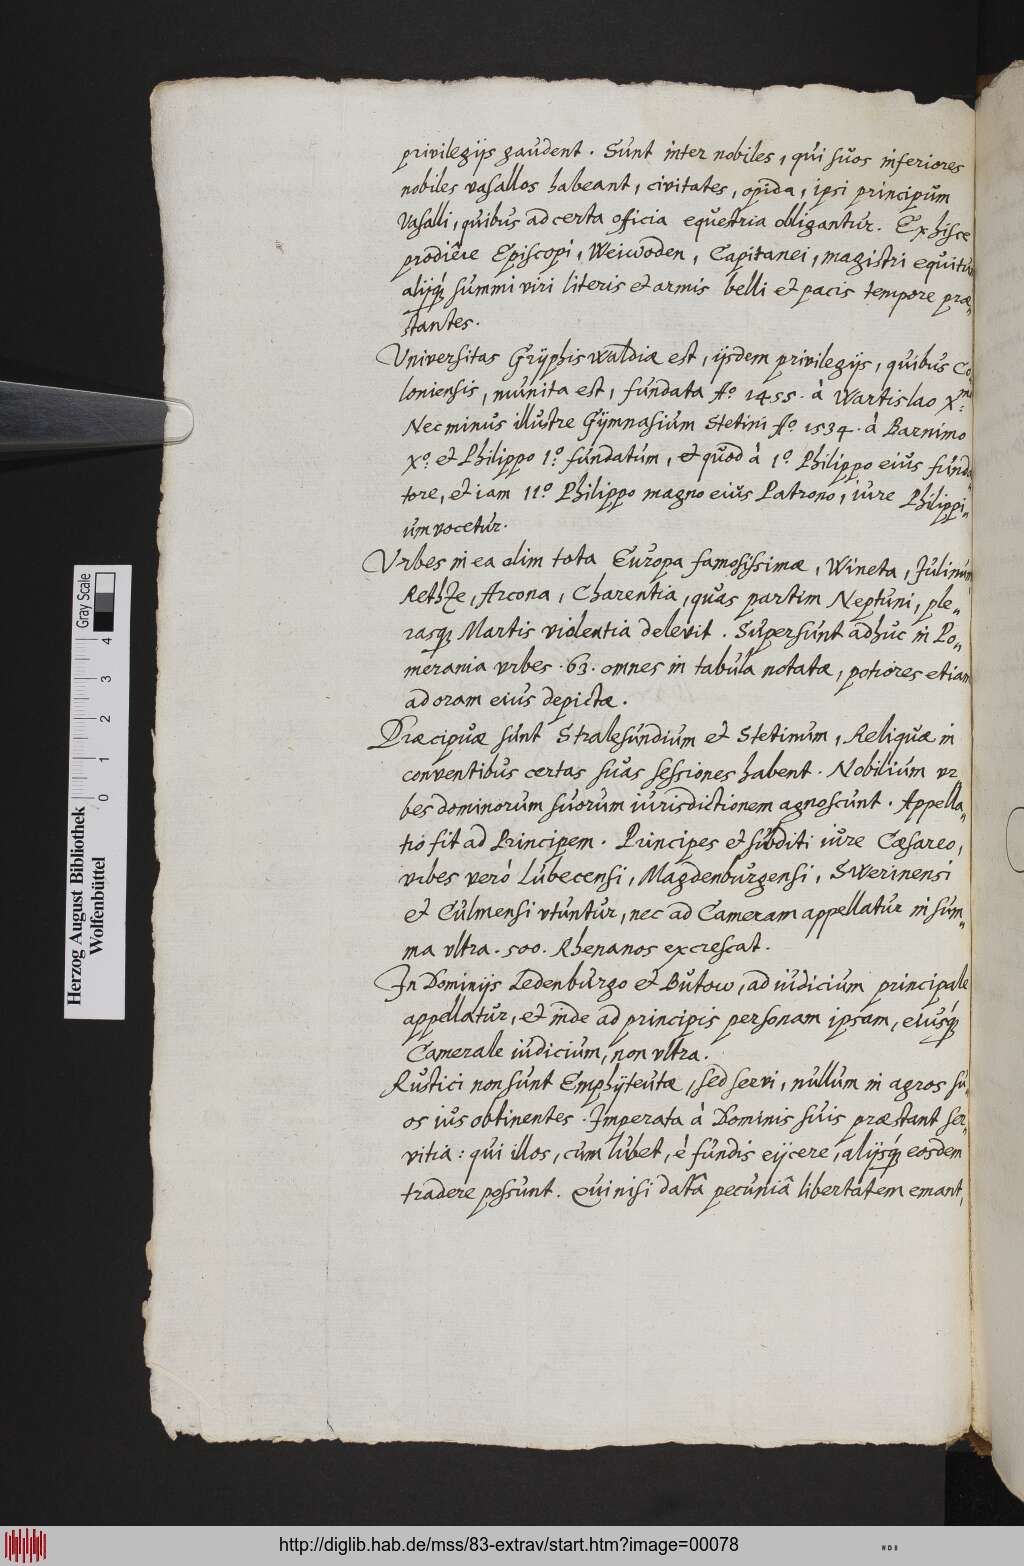 privilegijs gaudent. Sunt inter nobiles, qui suos inferiores
nobiles vasallos habeant, civitates, opida, ipsi principum
Vasalli, quibus ad certa officia equestria obligantur. Ex hisce
prodiêre Episcopi, Weiwoden, Capitanei, magistri equitum
alijq́; summi viri literis et armis belli et pacis tempore præ„
stantes.
Universitas Grÿphiswaldiæ est, ijsdem privilegijs, quibus Co„
loniensis, munita est, fundata Aº 1455. à Wartislao X.mo
Nec minus illustre Gÿmnasium Stetini Aº 1534. à Barnimo
Xº. et Philippo 1º. fundatum, et quod à 1º. Philippo eius funda„
tore, et iam 11º. Philippo magno eius Patrono, iure Philippi„
um vocetur.
Vrbes in ea olim tota Europa famosissimæ, Wineta, Julinum
Rethze, Arcona, Charentia, quas partim Neptuni, ple„
rasq; Martis violentia delevit. Supersunt adhuc in Po„
merania vrbes .63. omnes in tabula notatæ, potiores etiam
ad oram eius depictæ.
Præcipuæ sunt Stralesundium et Stetinum, Reliquæ in
conventibus certas suas sessiones habent. Nobilium vr
bes dominorum suorum iurisdictionem agnoscunt. Appella„
tio fit ad Principem. Principes et subditi iure Cæsareo,
vrbes verò Lubecensi, Magdenburgensi, Swerinensi
et Culmensi vtuntur, nec ad Cameram appellatur in sum„
ma vltra .500. Rhenanos excrescat.
In Dominijs Ledenburgo et Butow, ad iudicium principale
appellatur, et inde ad principis personam ipsam, eiusq́;
Camerale iudicium, non vltra.
Rustici non sunt Emphÿteutæ, sed servi, nullum in agros su„
os ius obtinentes. Imperata à Dominis suis præstant ser„
vitia: qui illos, cum lubet, è fundis eijcere, alijsq́; eosdem
tradere possunt. Qui nisi datâ pecuniâ libertatem emant,
Herzog August Bibliothek
Wolfenbüttel
0 1 2 3 4
Gray Scale
http://diglib.hab.de/mss/83-extrav/start.htm?image=00078
WDB